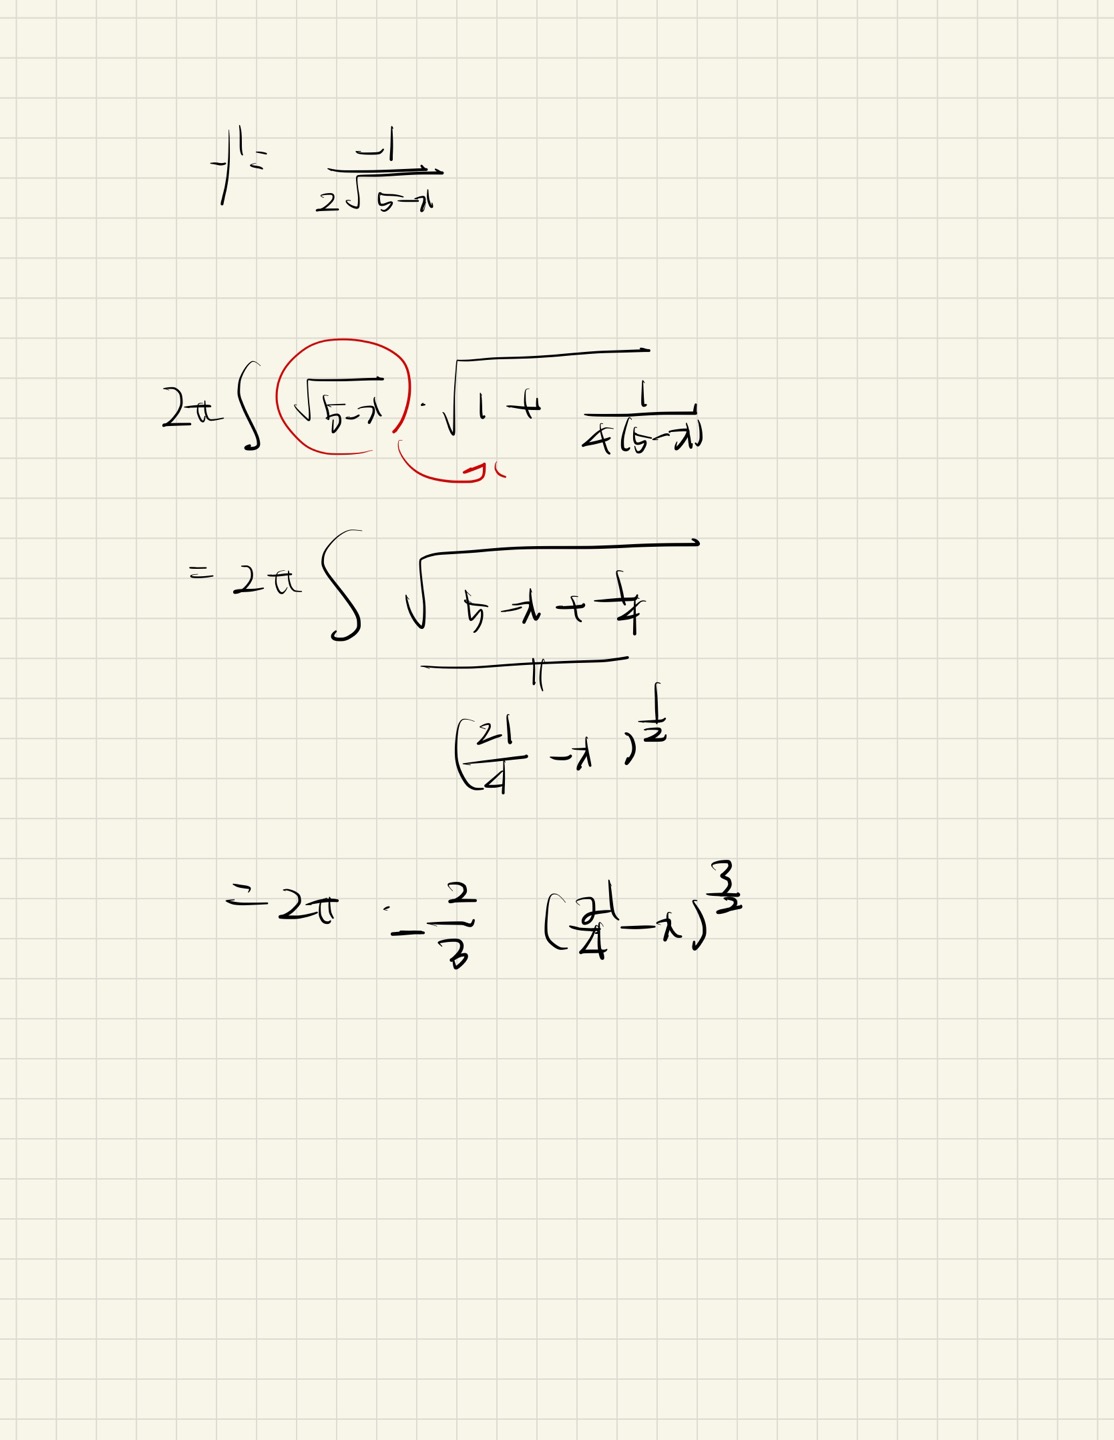 y' = -1/(2√(5-x))
2π ∫ √(5-x) · √(1 + 1/(4(5-x)))
= 2π ∫ √(5-x+1/4)
||
(21/4 - x)^(1/2)
= 2π · -2/3 (21/4 - x)^(3/2)